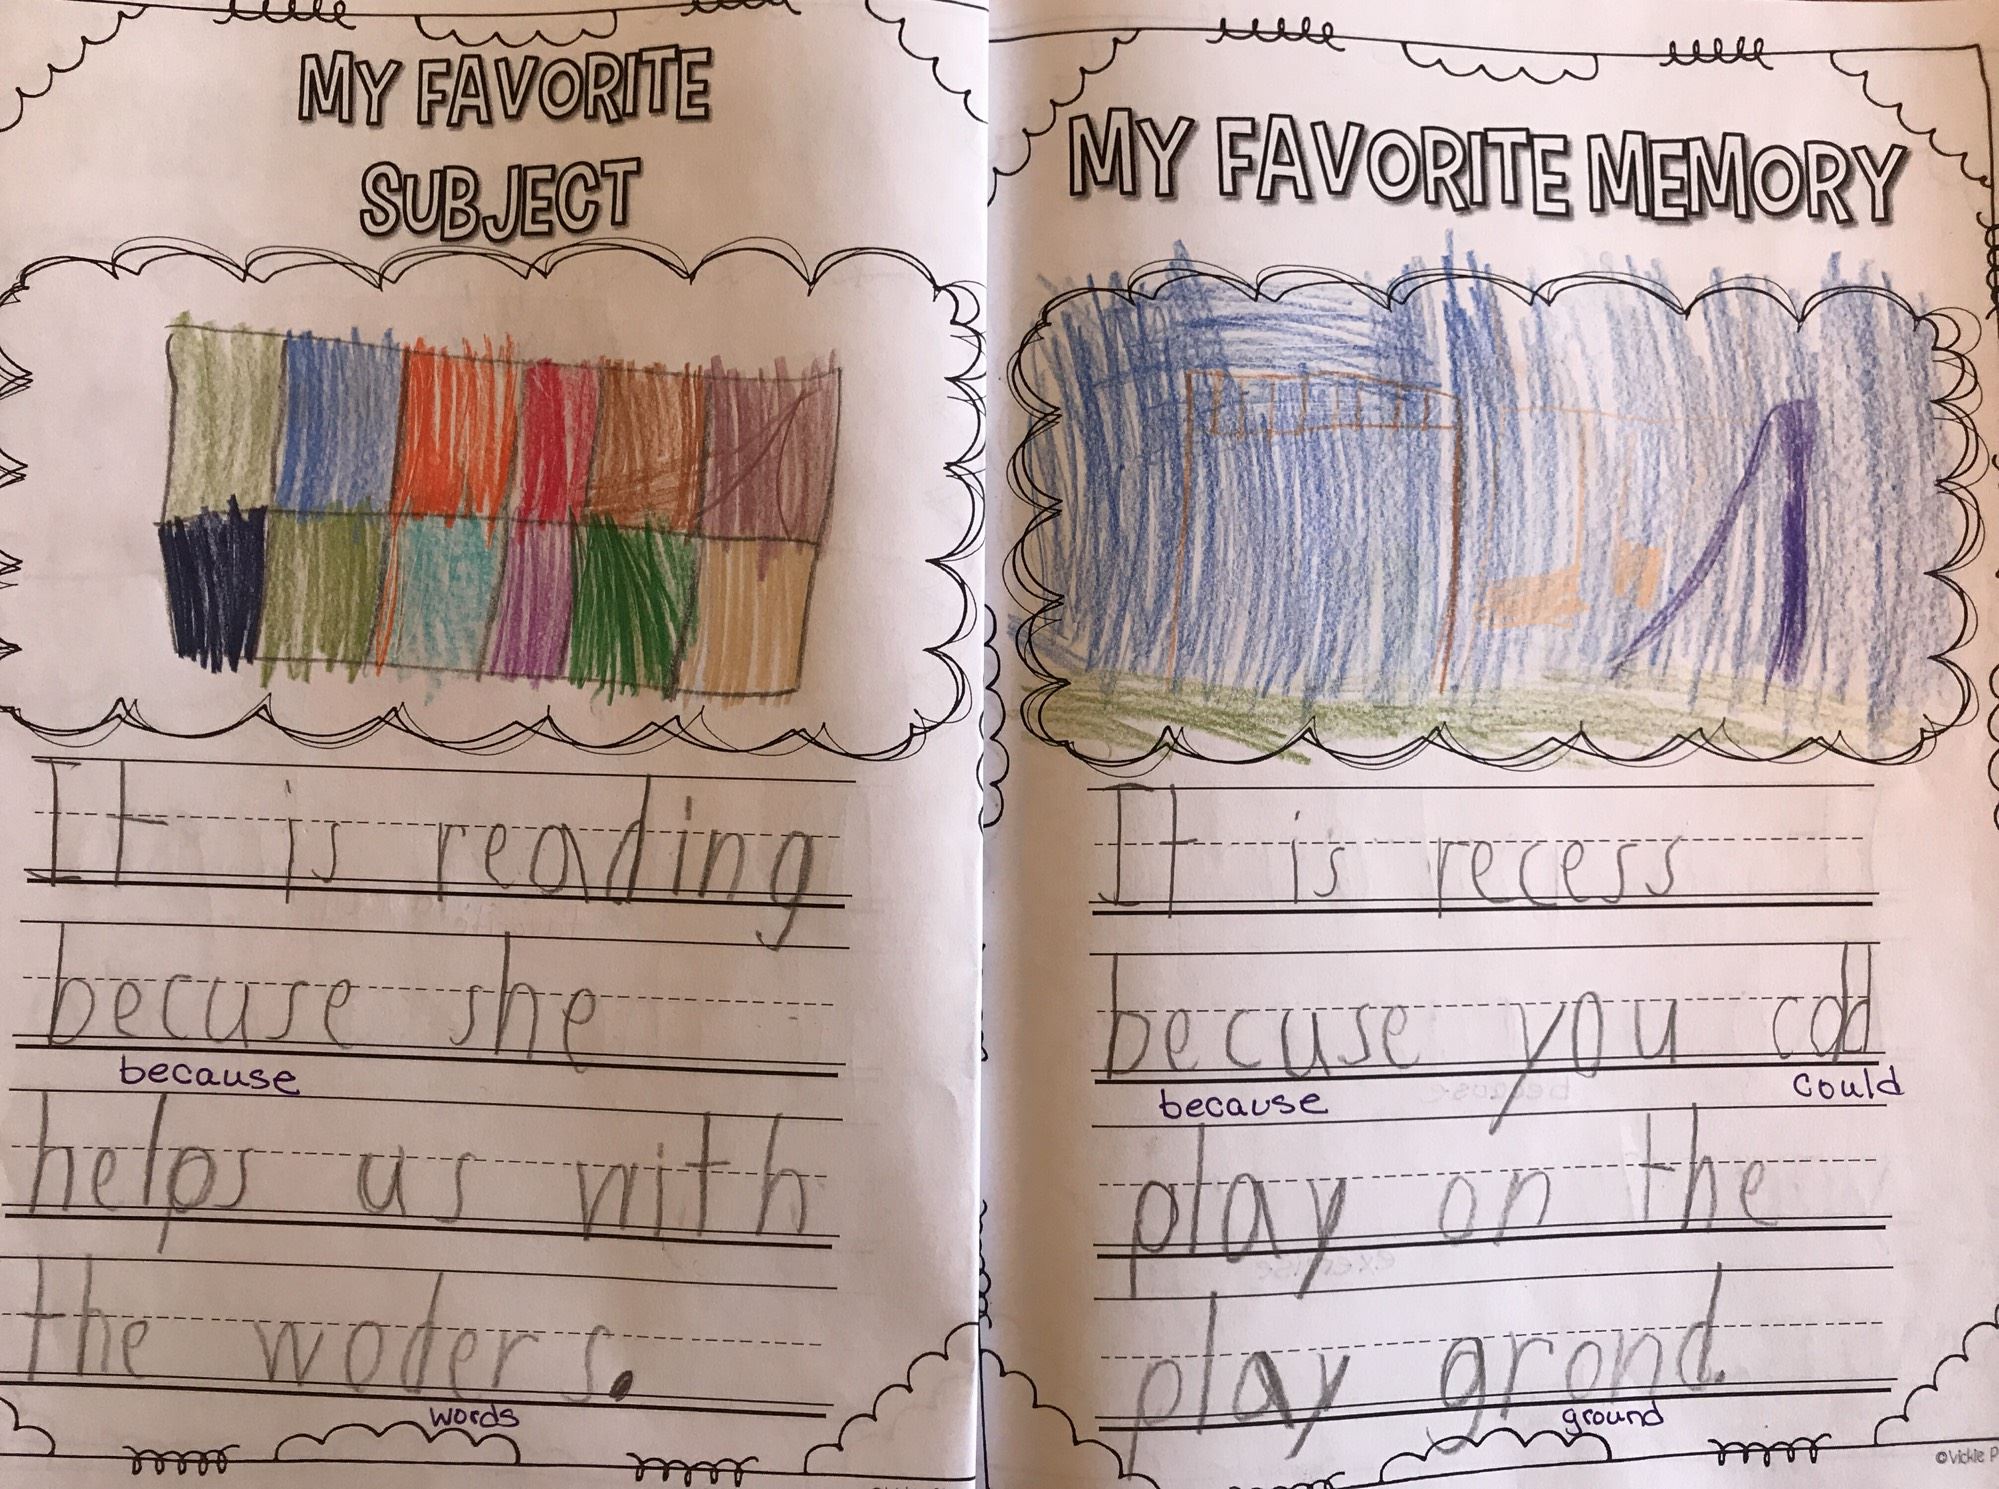 MY FAVORITE
SUBJECT
It is reading
becuse she
because
helps us with
the woders.
words
MY FAVORITE MEMORY
It is recess
becuse you cod
because could
play on the
play grond.
ground
©Vickie P